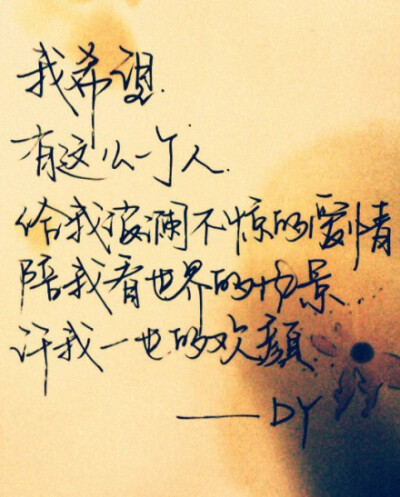 我希望.
有这么一个人.
给我波澜不惊的爱情
陪我看世界的物景.
许我一世的欢颜.
——DY